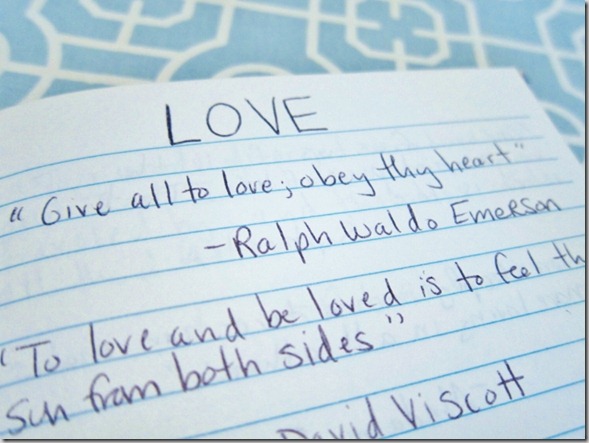 LOVE
"Give all to love; obey thy heart"
-Ralph Waldo Emerson
"To love and be loved is to feel th
sun from both sides"
David Viscott